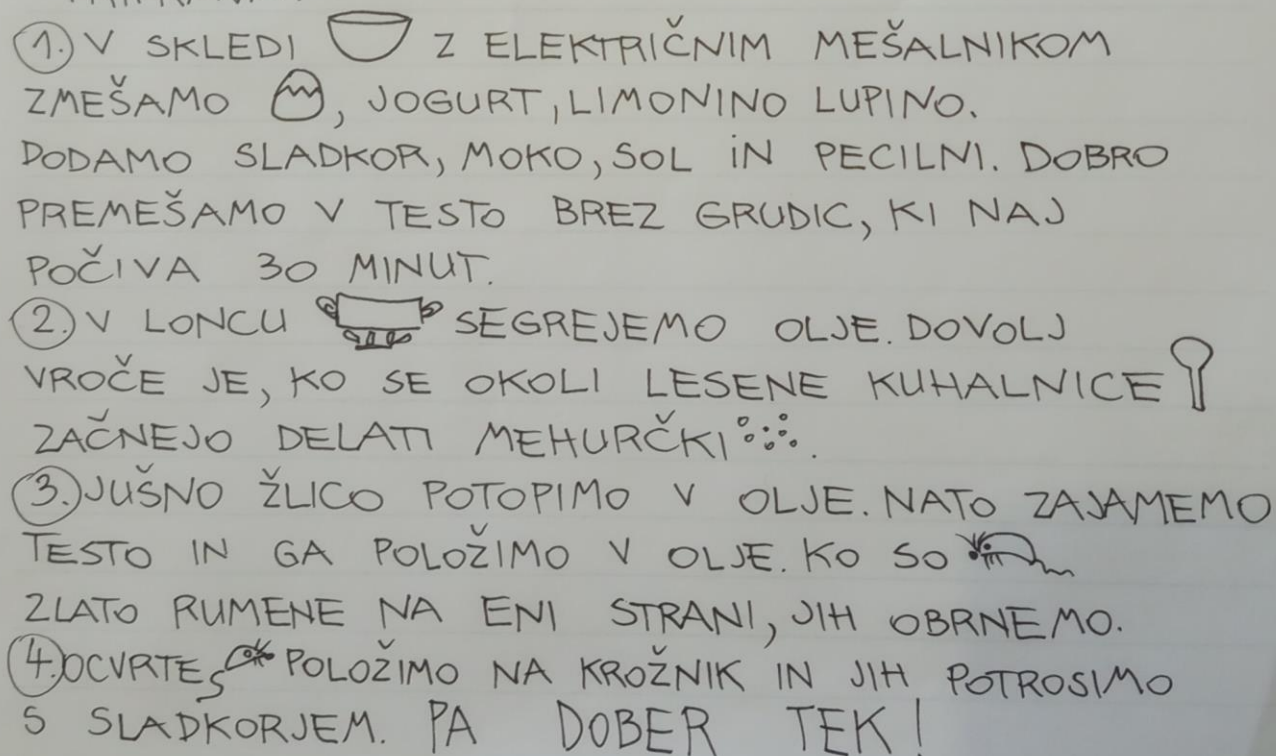 1. V SKLEDI Z ELEKTRIČNIM MEŠALNIKOM
ZMEŠAMO , JOGURT, LIMONINO LUPINO.
DODAMO SLADKOR, MOKO, SOL IN PECILNI. DOBRO
PREMEŠAMO V TESTO BREZ GRUDIC, KI NAJ
POČIVA 30 MINUT.
2. V LONCU SEGREJEMO OLJE. DOVOLJ
VROČE JE, KO SE OKOLI LESENE KUHALNICE
ZAČNEJO DELATI MEHURČKI.
3. JUŠNO ŽLICO POTOPIMO V OLJE. NATO ZAJAMEMO
TESTO IN GA POLOŽIMO V OLJE. KO SO
ZLATO RUMENE NA ENI STRANI, JIH OBRNEMO.
4. OCVRTE POLOŽIMO NA KROŽNIK IN JIH POTROSIMO
S SLADKORJEM. PA DOBER TEK!